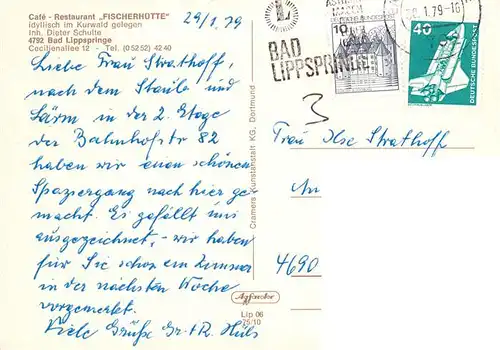 Café - Restaurant "FISCHERHÜTTE"
idyllisch im Kurwald gelegen
Inh. Dieter Schulte
4792 Bad Lippspringe
Cecilienallee 12 - Tel. (05252) 4240
29/1.79
Liebe Frau Strathoff,
nach dem Staub und
Lärm in der 2. Etage
der Bahnhofstr 82
haben wir einen schönen
Spaziergang nach hier ge
macht. Es gefällt uns
ausgezeichnet, - wir haben
für Sie schon ein Zimmer
in der nächsten Woche
vorgemerkt.
Viele Grüße Gr. + R. Hüls
Cramers Kunstanstalt KG, Dortmund
Agfacolor
Lip 06
75/10
L
BAD
LIPPSPRINGE
10
1.79-16
40
DEUTSCHE BUNDESPOST
3
Frau Ilse Strathoff
An
4690